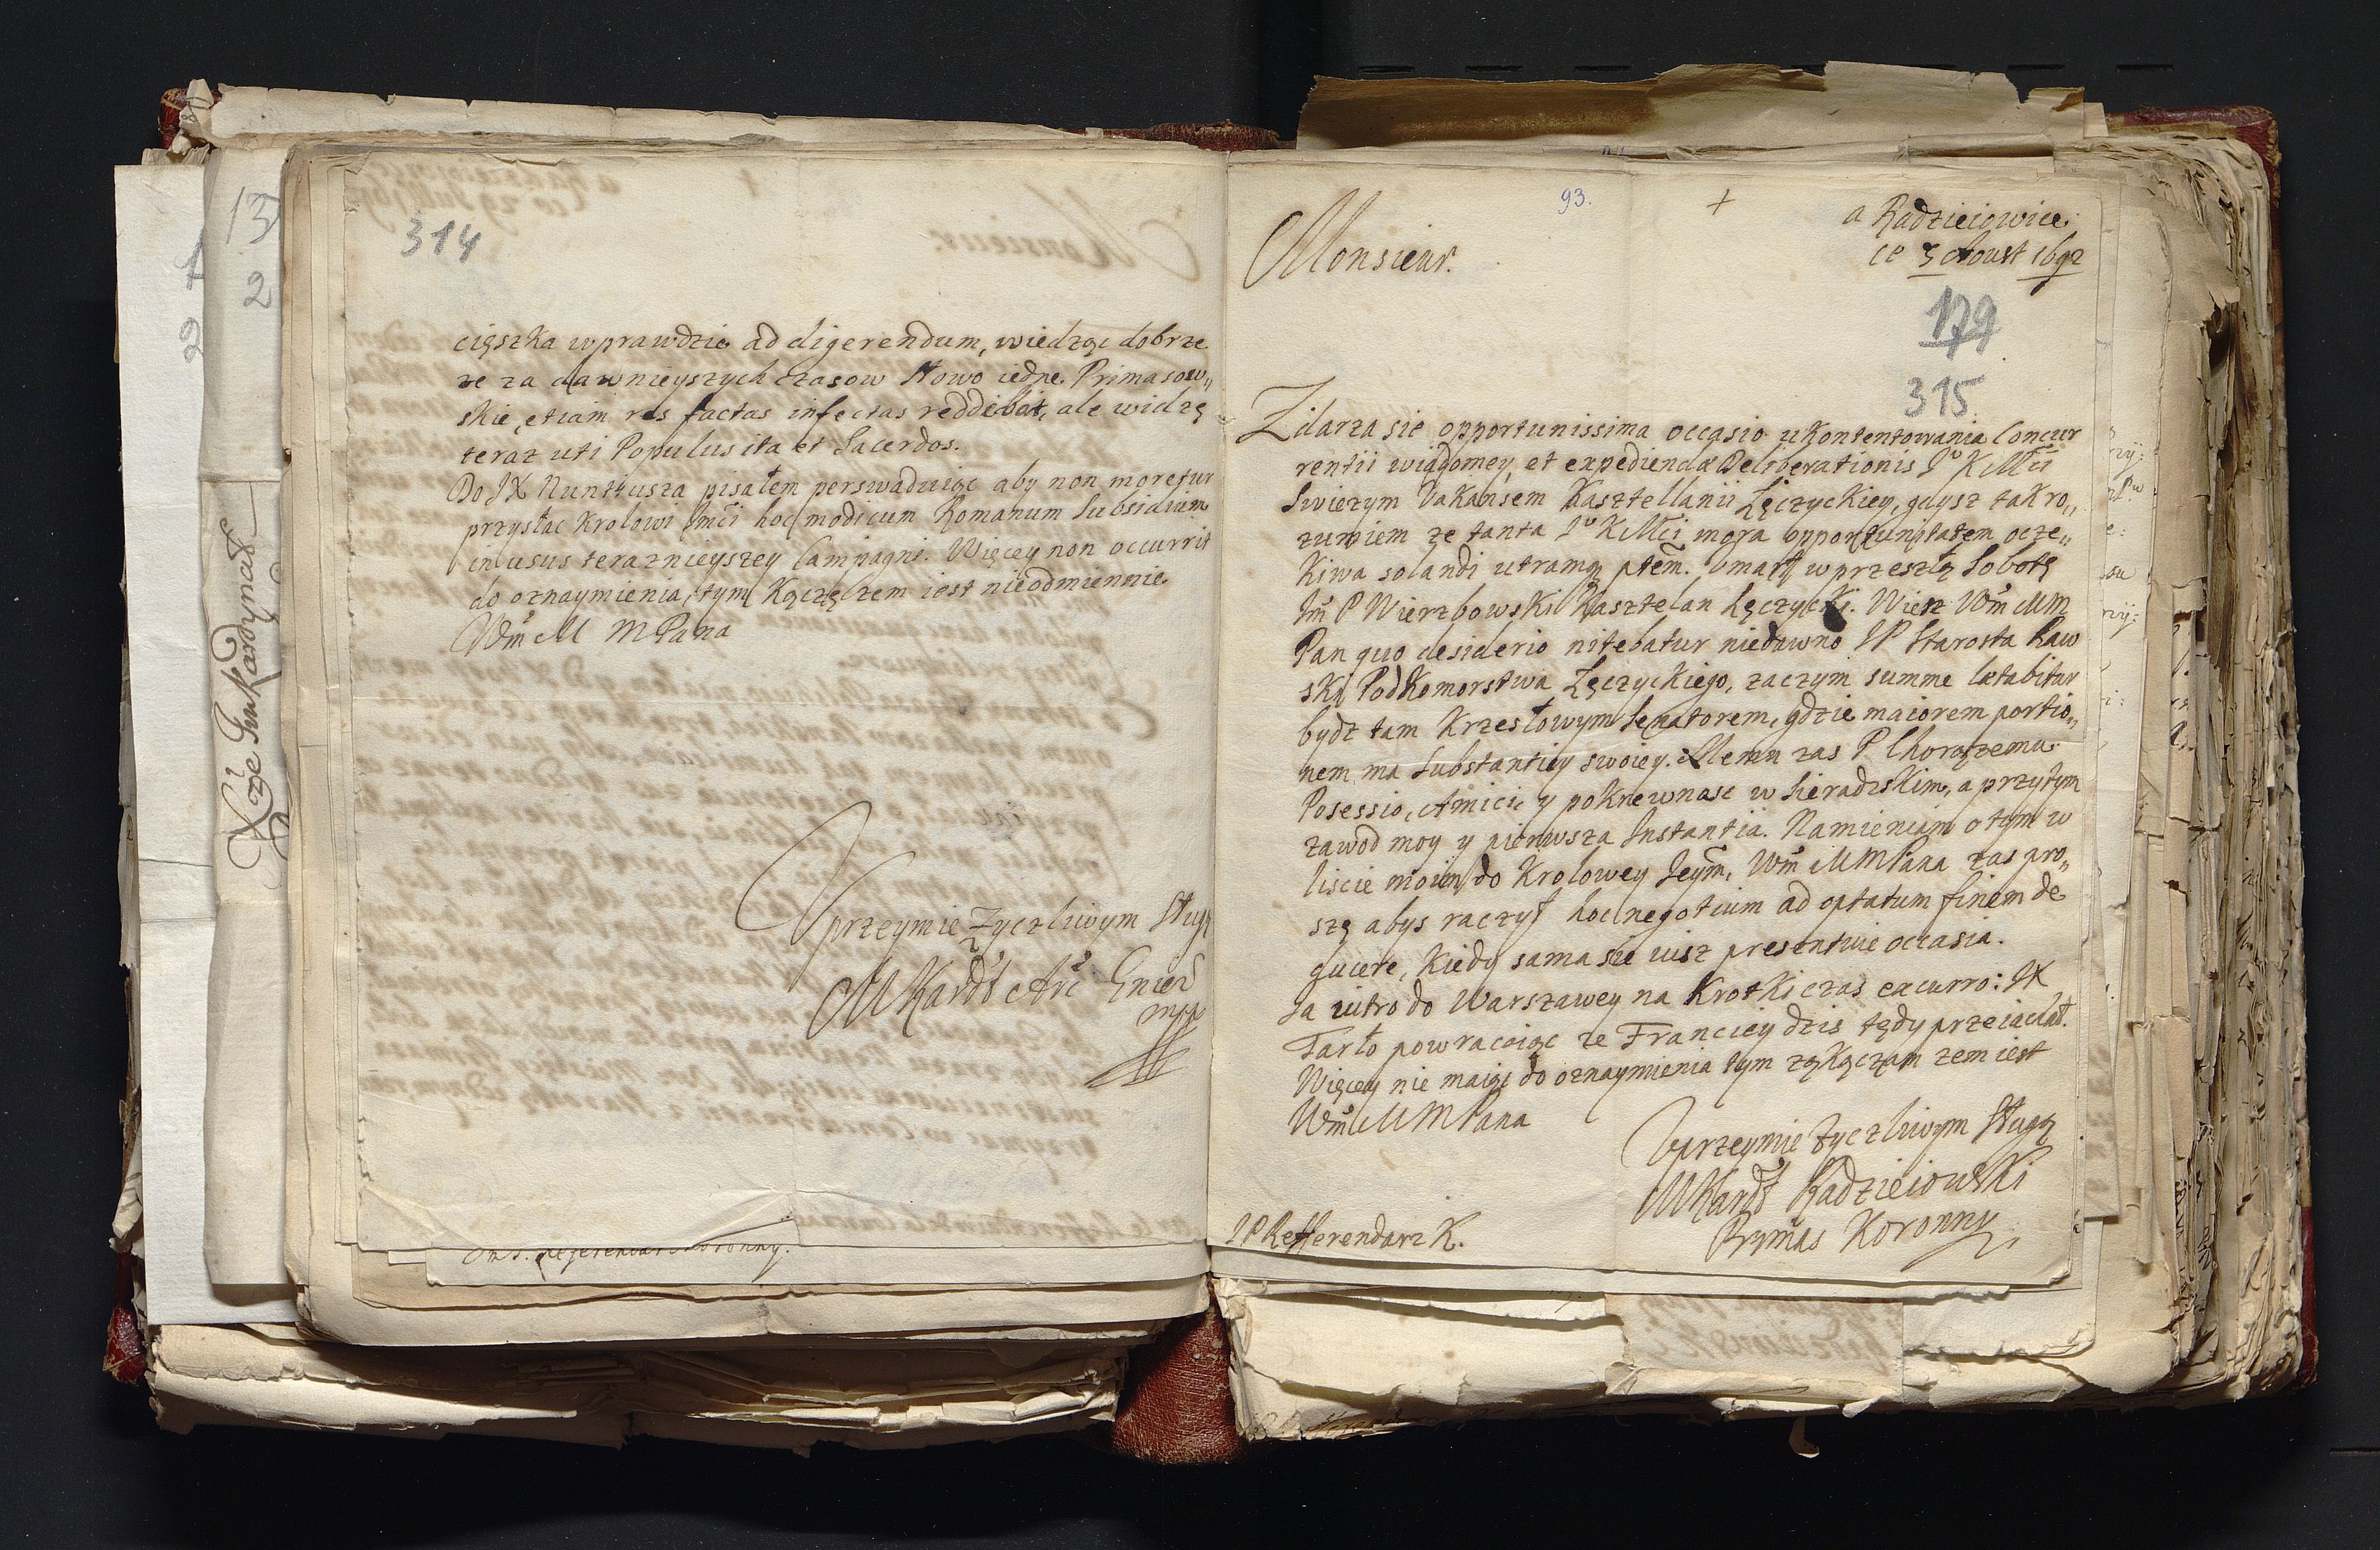 314
ciąszka wprawdzie ad digerendum, wiedząc dobrze
ze za dawnieyszych czasow Słowo iedne Primasow„
skie, etiam res factas infectas reddebat, ale widzę
teraz uti Populus ita et Sacerdos.
Do JX Nuntiusza pisałem perswaduiąc aby non moretur
przysłac Krolowi Jmći hoc modicum Romanum Subsidium
in usus teraznieyszey Campagni. Więcey non occurrit
do oznaymienia, tym Kączę zem iest nieodmiennie
Wm̃ M MPana
Uprzeymie Zyczliwym Sługą
MKardł Arć Gnień
mpp
Xże Jm Kardynał
13
2
1
2
93.
+
a Radzieiowice
ce 5 Aoust 1692
Monsieur.
179
315
Zdarza sie opportunissima occasio ukontentowania Concur
rentii wiadomey, et expediendæ Deliberationis Jo KMći
Swiezym Vakansem Kasztellanii Łęczyckiey, gdysz tak ro„
zumiem ze tanta Jo KMći mora opportunitatem ocze„
kiwa solandi utramq ptem̃. Umarł w przeszłą Sobotę
Jm̃ P Wierzbowski Kasztelan Łęczycki. Wiesz Wm̃ MM
Pan quo desiderio nitebatur niedawno JP Starosta Raw
ski Podkomorstwa Łęczyckiego, zaczym summe lætabitur
bydz tam Krzesłowym Senatorem, gdzie maiorem portio„
nem ma Substantiiy swoiey. Memu zas P Chorązemu
Posessio, Amicic y pokrewnosc w Sieradzskim, a przytym
zawod moy y pierwsza Instantia. Namieniam o tym w
liscie moim do Krolowey Jeym̃, Wm̃ MMPana zas pro„
szę abys raczył hoc negotium ad optatum finem de
gucere, Kiedy sama sie iusz presentuie occasia.
Ja iutro do Warszawey na Krotki czas excurro: JX
Tarło powracaiąc ze Franciey dzis tędy przeiachał.
Więcey nie maiąc do oznaymienia tym ząKączam zem iest
Wm̃ MMPana
Uprzeymie Zyczliwym Sługą
MKardł Radzieiowski
Prymas Koronny
JP Refferendarz K.